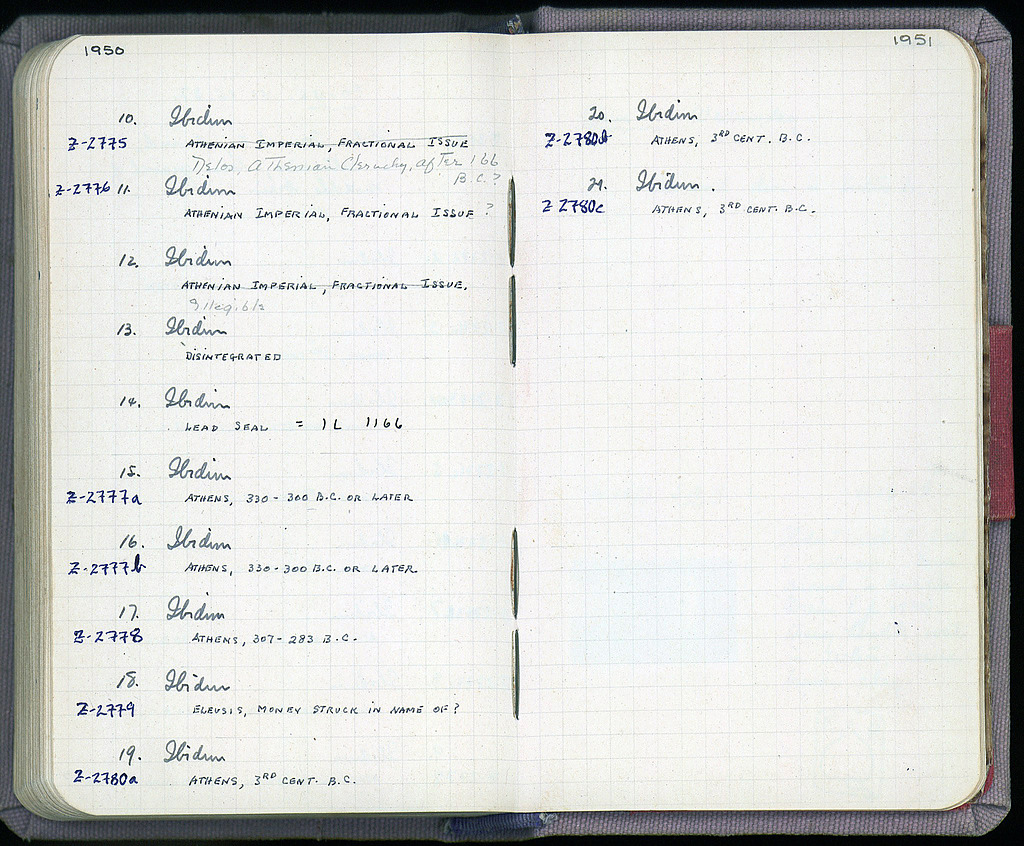 1950
10. Ibidem
Z-2775 ATHENIAN IMPERIAL, FRACTIONAL ISSUE
Delos, Athenian Cleruchy, after 166
B.C.?
Z-2776 11. Ibidem
ATHENIAN IMPERIAL, FRACTIONAL ISSUE ?
12. Ibidem
ATHENIAN IMPERIAL, FRACTIONAL ISSUE.
Illegible
13. Ibidem
DISINTEGRATED
14. Ibidem
LEAD SEAL = IL 1166
15. Ibidem
Z-2777a ATHENS, 330-300 B.C. OR LATER
16. Ibidem
Z-2777b ATHENS, 330-300 B.C. OR LATER
17. Ibidem
Z-2778 ATHENS, 307-283 B.C.
18. Ibidem
Z-2779 ELEUSIS, MONEY STRUCK IN NAME OF?
19. Ibidem
Z-2780a ATHENS, 3RD CENT. B.C.
1951
20. Ibidem
ATHENS, 3RD CENT. B.C.
21. Ibidem.
Z-2780c ATHENS, 3RD CENT. B.C.